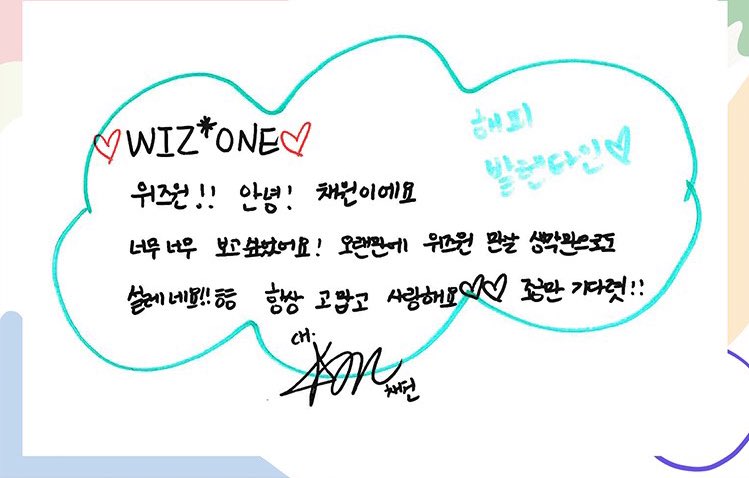 ♡WIZ*ONE♡
해피
발렌타인♡
위즈원!! 안녕! 채원이에요
너무너무 보고싶었어요! 오랜만에 위즈원 만날 생각만으로도
설레네요!!ㅎㅎ 항상 고맙고 사랑해요♡♡ 조금만 기다렷!!
채원